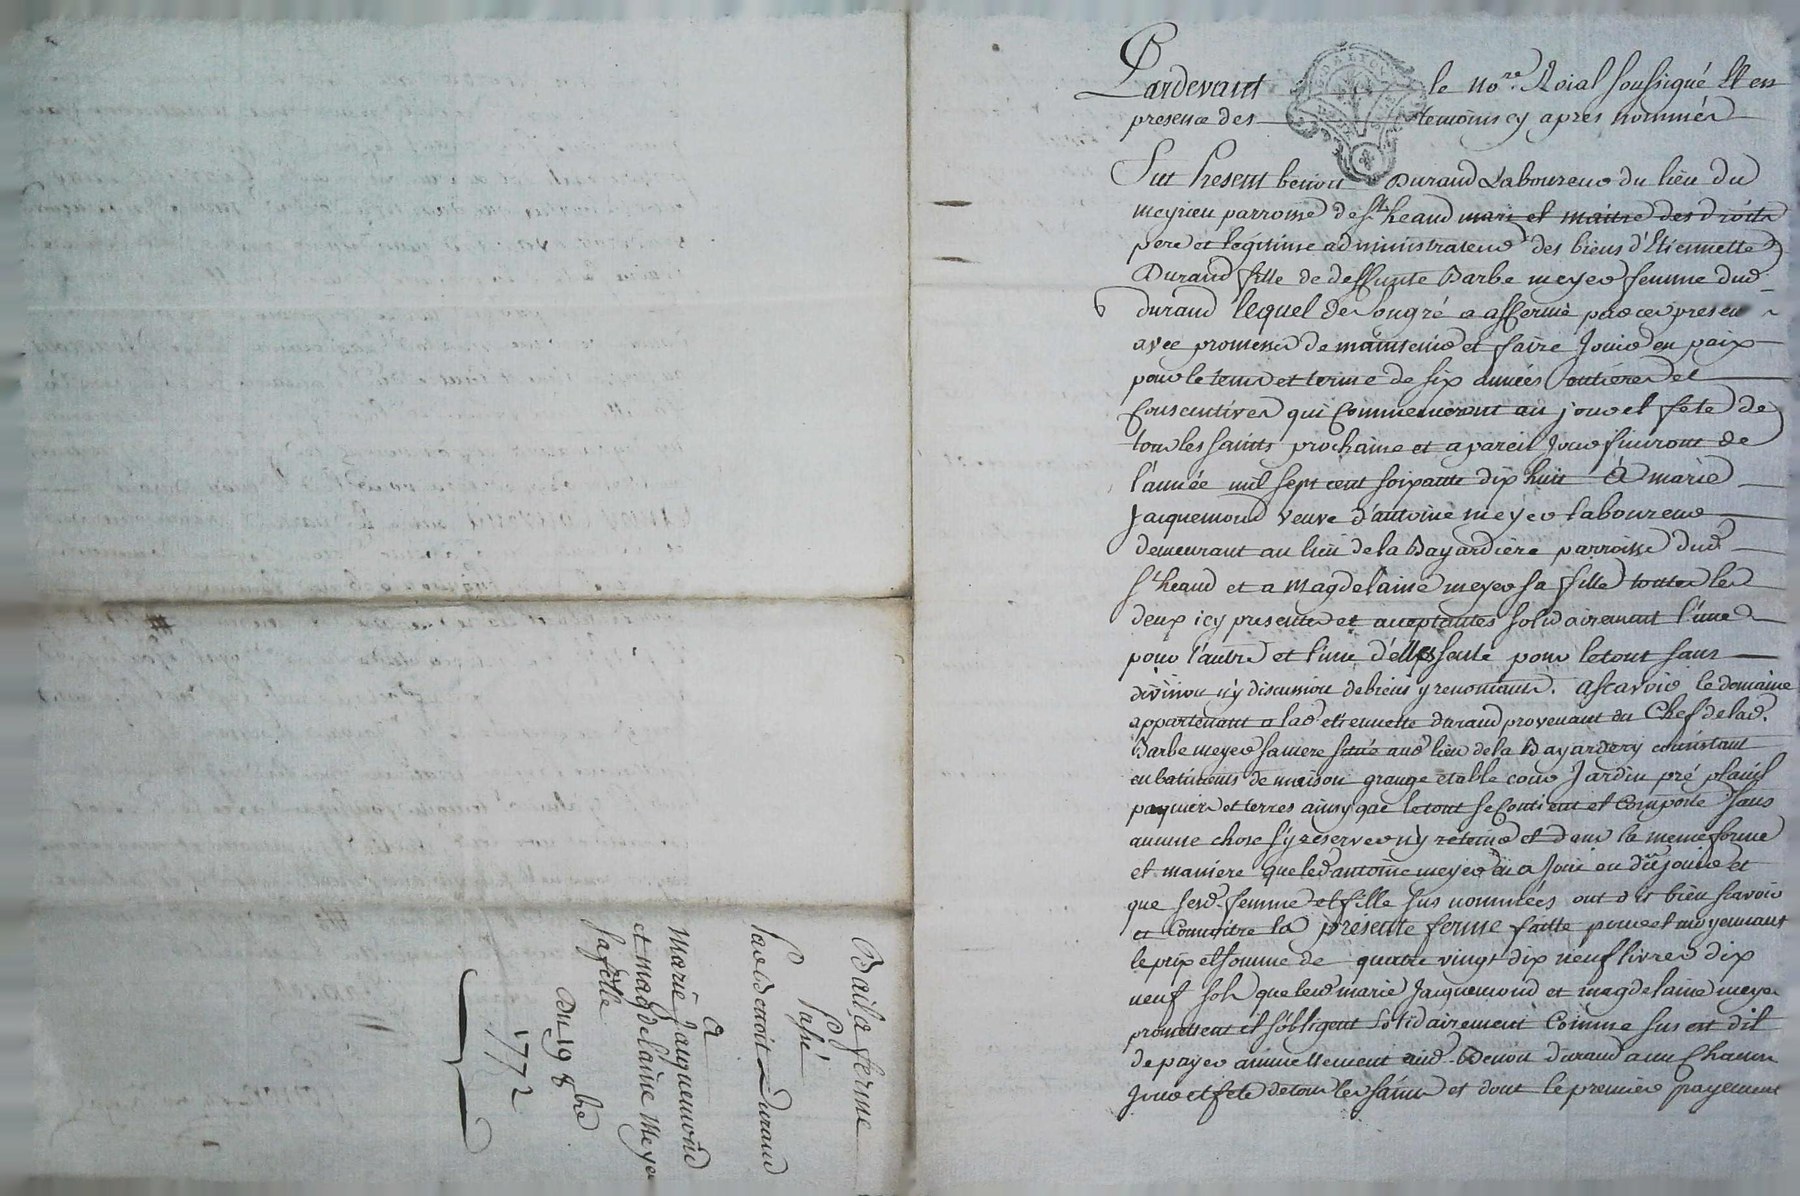 Pardevant le no.re Roial soussigné Et en
presence des temoins cy apres nommés
Fut Present benoit Durand Laboureur du lieu du
meyrieu parroisse de St. heand mari et maitre des droits
pere et legitime administrateur des biens d'Etiennette
Durand fille de deffunte Barbe meyer femme dud.
durand lequel de son gré a affermé par ces presen
avec promesse de maintenir et faire Jouir en paix
pour le tems et terme de six années entieres et
Consecutives qui Commenceront au jour et fete de
tous les saints prochaine et a pareil Jour finiront de
l'année mil sept cent soixante dix huit A marie
Jacquemond veuve d'antoine meyer laboureur
demeurant au lieu de la Bayardiere parroisse dud.
St. heand et a Magdelaine meyer sa fille toutes les
deux icy presentes et acceptantes solidairement l'une
pour l'autre et l'une d'elles seule pour le tout sans
division n'y discussion de biens y renoncants. ascavoir le domaine
appartenant a lad. etiennette durand provenant du Chef de lad.
Barbe meyer sa mere situé aud. lieu de la Bayardery consistant
en batiments de maison grange etable cour Jardin pré
paquiers et terres ainsy que le tout se Contient et Comporte sans
aucune chose s'y reserver n'y retenir et dans la meme forme
et maniere que led. antoine meyer en a Joui ou dû jouir et
que sesd. femme et fille sus nommées ont dit bien scavoir
et Connoitre la présente ferme faitte pour et moyennant
le prix et somme de quatre vingt dix neuf livres dix
neuf sols que lesd. marie Jacquemond et magdelaine meyer
promettent et s'obligent solidairement Comme sus est dit
de payer annuellement aud. Benoit durand a un Chacun
Jour et fete de tous les saints et dont le premier payement
Bail a ferme
Passé
Par benoit Durand
A
Marie Jacquemond
et magdelaine Meyer
sa fille
Du 19 8bre
1772